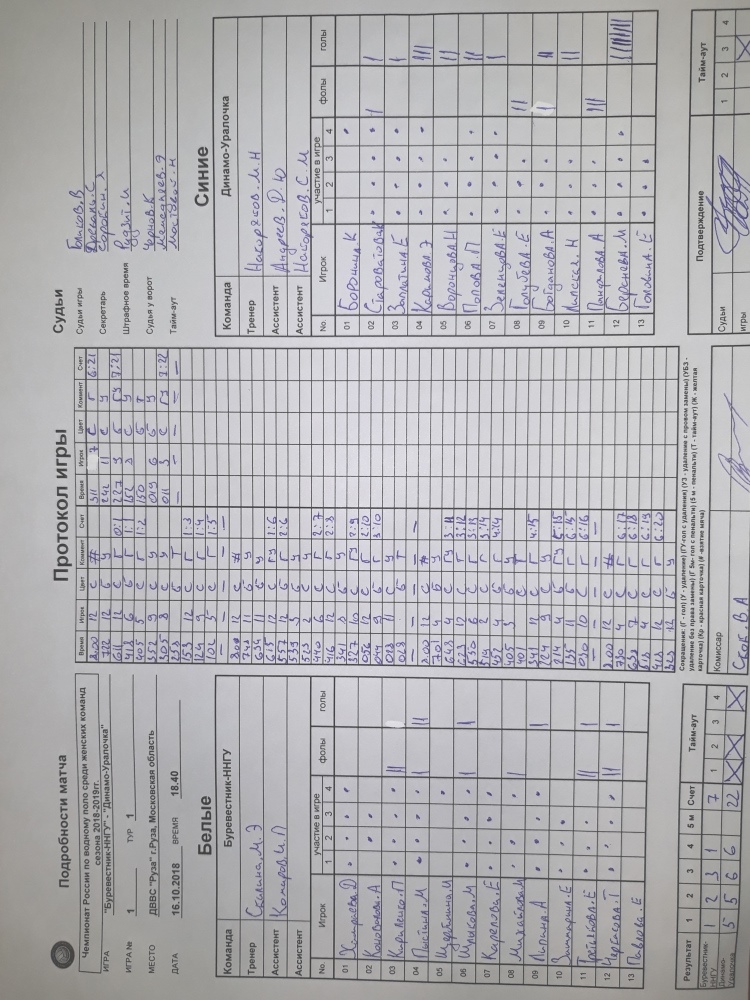 Подробности матча
Чемпионат России по водному поло среди женских команд
сезона 2018-2019гг.
ИГРА "Буревестник-ННГУ" - "Динамо-Уралочка"
ИГРА № 1 ТУР 1
МЕСТО ДВВС "Руза" г.Руза, Московская область
ДАТА 16.10.2018 ВРЕМЯ 18.40
Белые
Команда Буревестник-ННГУ
Тренер Скалина.М.Э
Ассистент Комаров.И.П
Ассистент
No. Игрок участие в игре фолы голы
1 2 3 4
01
02 Коновалова.А
03 Кириленко.П
04 Пыстина.М
05 Щербинина.И
06 Шлыкова.М
07 Карелова.Е
08 Михайлова.М
09 Лапина.А
10
11 Третьякова.Е
12 Черкасова.Т
13 Павлова.Е
Результат 1 2 3 4 5 м Счет Тайм-аут
Буревестник-ННГУ 1 2 3 1 7 1 2 3 4
Динамо-Уралочка 5 5 6 6 22
Протокол игры
Время Игрок Цвет Коммент Счет Время Игрок Цвет Коммент Счет
8.00 12 С # 311 7 С Г 6:21
722 12 Б У 242 11 С У
611 12 С Г 0:1 227 3 Б ГУ 7:21
418 6 Б Г 1:1 152 С У
405 5 С Г 1:2 150 Б Т
352 9 С У 019 6 Б У
305 8 С У 011 3 С ГУ 7:22
253 Б Т
153 12 С Г 1:3
124 9 С Г 1:4
102 5 С Г 1:5
8.00 12 С #
743 11 Б У
634 11 Б У
615 12 С ГУ 1:6
557 12 Б Г 2:6
539 3 Б У
523 2 С У
440 6 С Г 2:7
416 12 С Г 2:8
341 8 Б У
327 10 С ГУ 2:9
056 12 С Г 2:10
044 9 Б Г 3:10
028 11 С У
028 Б Т
8.00 12 С #
701 4 Б У
648 4 С ГУ 3:11
623 12 Г 3:12
550 6 С Г 3:13
514 2 С Г 3:14
452 4 Б Г 4:14
405 3 Б У
401 С Т
341 12 С Г 4:15
224 9 С У
214 4 Б ГУ 5:15
135 11 Б Г 6:15
030 10 С Г 6:16
8.00 12 С #
730 4 С Г 6:17
638 7 С Г 6:18
518 4 С Г 6:19
418 12 С Г 6:20
323 12 Б У
Сокращения: (Г - гол) (У - удаление) (ГУ-гол с удаления) (УЗ - удаление с провом замены) (УБЗ - удаление без права замены) (Г 5м- гол с пенальти) (5 м - пенальти) (Т - тайм-аут) (Ж - желтая карточка) (Кр - красная карточка) (# -взятие мяча)
Комиссар
Скок.В.А
Судьи
Судьи игры Голиков.В
Дрекаль.С
Секретарь Сорокин.Я
Штрафное время Рудзит.И
Судья у ворот Чернов.К
Тайм-аут Мостовой.Н
Синие
Команда Динамо-Уралочка
Тренер Накоряков.М.Н
Ассистент Андреев.Д.Ю
Ассистент Накоряков.С.М
No. Игрок участие в игре фолы голы
1 2 3 4
01 Воронина.К
02
03 Заплатина.Е
04 Каримова.Э
05 Воронцова.Н
06 Попова.П
07 Зеленцова.Е
08 Голубева.Е
09 Богданова.А
10 Липская.Н
11 Панфилова.А
12 Берснева.М
13 Головина.Е
Подтверждение Тайм-аут
Судьи 1 2 3 4
игры